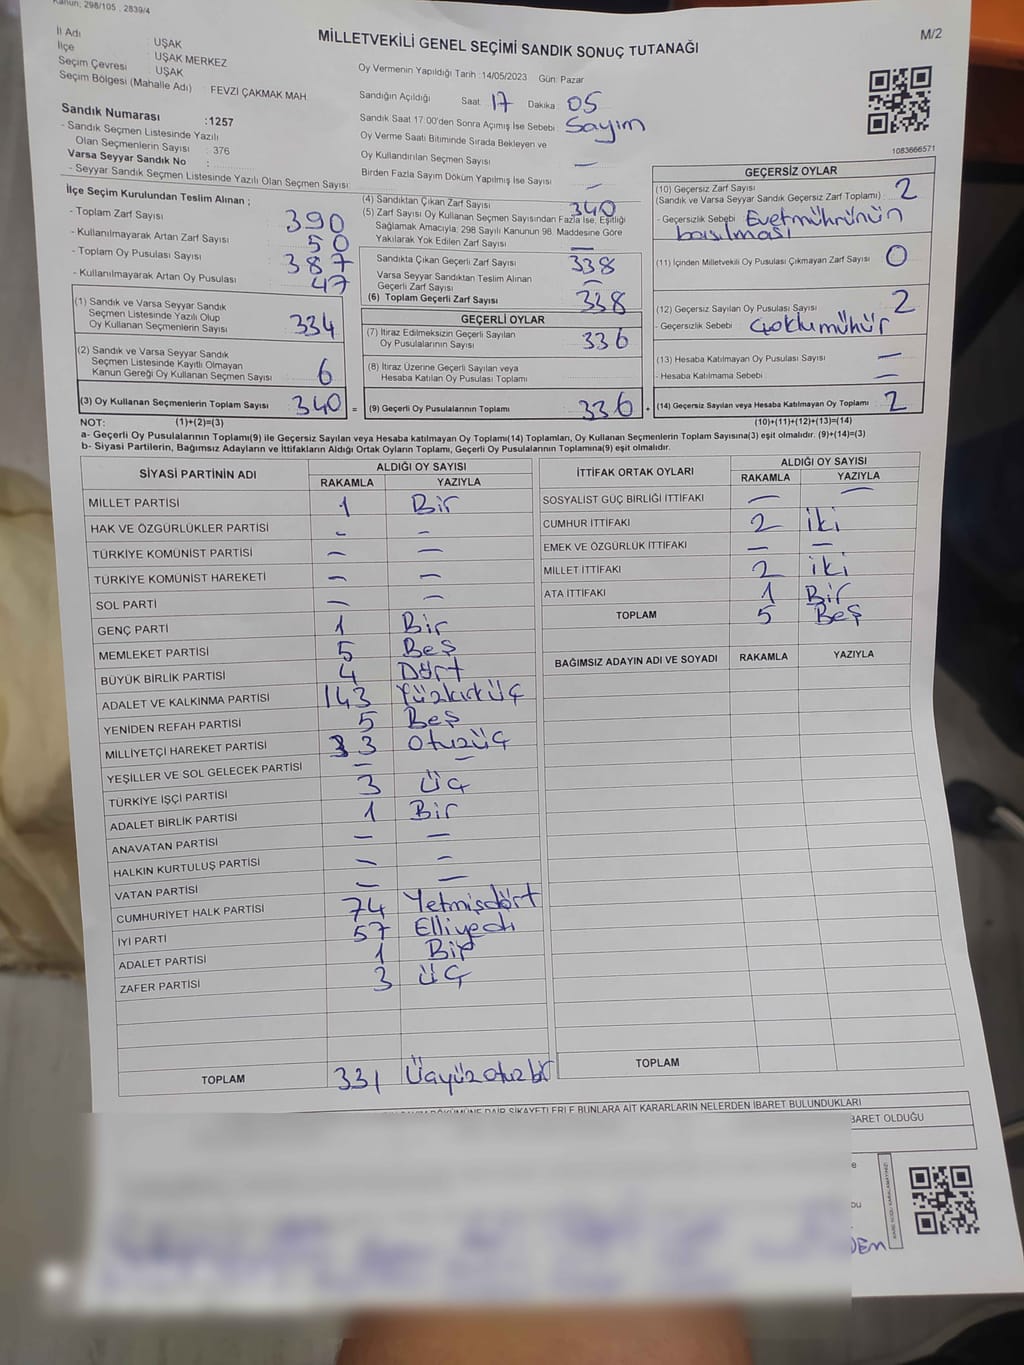 Kanun; 298/105 , 2839/4
M/2
MİLLETVEKİLİ GENEL SEÇİMİ SANDIK SONUÇ TUTANAĞI
İl Adı : UŞAK
İlçe : UŞAK MERKEZ
Seçim Çevresi : UŞAK
Seçim Bölgesi (Mahalle Adı) : FEVZİ ÇAKMAK MAH
Sandık Numarası :1257
- Sandık Seçmen Listesinde Yazılı
Olan Seçmenlerin Sayısı : 376
Varsa Seyyar Sandık No :
- Seyyar Sandık Seçmen Listesinde Yazılı Olan Seçmen Sayısı:
Oy Vermenin Yapıldığı Tarih :14/05/2023 Gün: Pazar
Sandığın Açıldığı Saat: 17 Dakika: 05
Sandık Saat 17:00'den Sonra Açımış İse Sebebi: Sayım
Oy Verme Saati Bitiminde Sırada Bekleyen ve
Oy Kullandırılan Seçmen Sayısı : —
Birden Fazla Sayım Döküm Yapılmış İse Sayısı : —
1083666571
İlçe Seçim Kurulundan Teslim Alınan ;
- Toplam Zarf Sayısı : 390
- Kullanılmayarak Artan Zarf Sayısı : 50
- Toplam Oy Pusulası Sayısı : 387
- Kullanılmayarak Artan Oy Pusulası : 47
(1) Sandık ve Varsa Seyyar Sandık
Seçmen Listesinde Yazılı Olup
Oy Kullanan Seçmenlerin Sayısı : 334
(2) Sandık ve Varsa Seyyar Sandık
Seçmen Listesinde Kayıtlı Olmayan
Kanun Gereği Oy Kullanan Seçmen Sayısı : 6
(3) Oy Kullanan Seçmenlerin Toplam Sayısı : 340 =
(4) Sandıktan Çıkan Zarf Sayısı : 340
(5) Zarf Sayısı Oy Kullanan Seçmen Sayısından Fazla İse, Eşitliği
Sağlamak Amacıyla; 298 Sayılı Kanunun 98. Maddesine Göre
Yakılarak Yok Edilen Zarf Sayısı : —
Sandıkta Çıkan Geçerli Zarf Sayısı : 338
Varsa Seyyar Sandıktan Teslim Alınan
Geçerli Zarf Sayısı : —
(6) Toplam Geçerli Zarf Sayısı : 338
GEÇERLİ OYLAR
(7) İtiraz Edilmeksizin Geçerli Sayılan
Oy Pusulalarının Sayısı : 336
(8) İtiraz Üzerine Geçerli Sayılan veya
Hesaba Katılan Oy Pusulası Toplamı :
(9) Geçerli Oy Pusulalarının Toplamı : 336 +
GEÇERSİZ OYLAR
(10) Geçersiz Zarf Sayısı
(Sandık ve Varsa Seyyar Sandık Geçersiz Zarf Toplamı) : 2
- Geçersizlik Sebebi : Evet mührünün
basılması
(11) İçinden Milletvekili Oy Pusulası Çıkmayan Zarf Sayısı : 0
(12) Geçersiz Sayılan Oy Pusulası Sayısı : 2
- Geçersizlik Sebebi : Çoklu mühür
(13) Hesaba Katılmayan Oy Pusulası Sayısı : —
- Hesaba Katılmama Sebebi : —
(14) Geçersiz Sayılan veya Hesaba Katılmayan Oy Toplamı : 2
NOT: (1)+(2)=(3) (10)+(11)+(12)+(13)=(14)
a- Geçerli Oy Pusulalarının Toplamı(9) ile Geçersiz Sayılan veya Hesaba katılmayan Oy Toplamı(14) Toplamları, Oy Kullanan Seçmenlerin Toplam Sayısına(3) eşit olmalıdır. (9)+(14)=(3)
b- Siyasi Partilerin, Bağımsız Adayların ve İttifakların Aldığı Ortak Oyların Toplamı, Geçerli Oy Pusulalarının Toplamına(9) eşit olmalıdır.
SİYASİ PARTİNİN ADI ALDIĞI OY SAYISI
RAKAMLA YAZIYLA
MİLLET PARTİSİ 1 Bir
HAK VE ÖZGÜRLÜKLER PARTİSİ — —
TÜRKİYE KOMÜNİST PARTİSİ — —
TÜRKİYE KOMÜNİST HAREKETİ — —
SOL PARTİ — —
GENÇ PARTİ 1 Bir
MEMLEKET PARTİSİ 5 Beş
BÜYÜK BİRLİK PARTİSİ 4 Dört
ADALET VE KALKINMA PARTİSİ 143 Yüzkırküç
YENİDEN REFAH PARTİSİ 5 Beş
MİLLİYETÇİ HAREKET PARTİSİ 33 otuzüç
YEŞİLLER VE SOL GELECEK PARTİSİ — —
TÜRKİYE İŞÇİ PARTİSİ 3 Üç
ADALET BİRLİK PARTİSİ 1 Bir
ANAVATAN PARTİSİ — —
HALKIN KURTULUŞ PARTİSİ — —
VATAN PARTİSİ — —
CUMHURİYET HALK PARTİSİ 74 Yetmişdört
İYİ PARTİ 57 Elliyedi
ADALET PARTİSİ 1 Bir
ZAFER PARTİSİ 3 Üç
TOPLAM 331 Üçyüzotuzbir
İTTİFAK ORTAK OYLARI ALDIĞI OY SAYISI
RAKAMLA YAZIYLA
SOSYALİST GÜÇ BİRLİĞİ İTTİFAKI — —
CUMHUR İTTİFAKI 2 iki
EMEK VE ÖZGÜRLÜK İTTİFAKI — —
MİLLET İTTİFAKI 2 iki
ATA İTTİFAKI 1 Bir
TOPLAM 5 Beş
BAĞIMSIZ ADAYIN ADI VE SOYADI RAKAMLA YAZIYLA
TOPLAM
DÖKÜMÜNE DAİR ŞİKAYETLERLE BUNLARA AİT KARARLARIN NELERDEN İBARET BULUNDUKLARI
BARET OLDUĞU